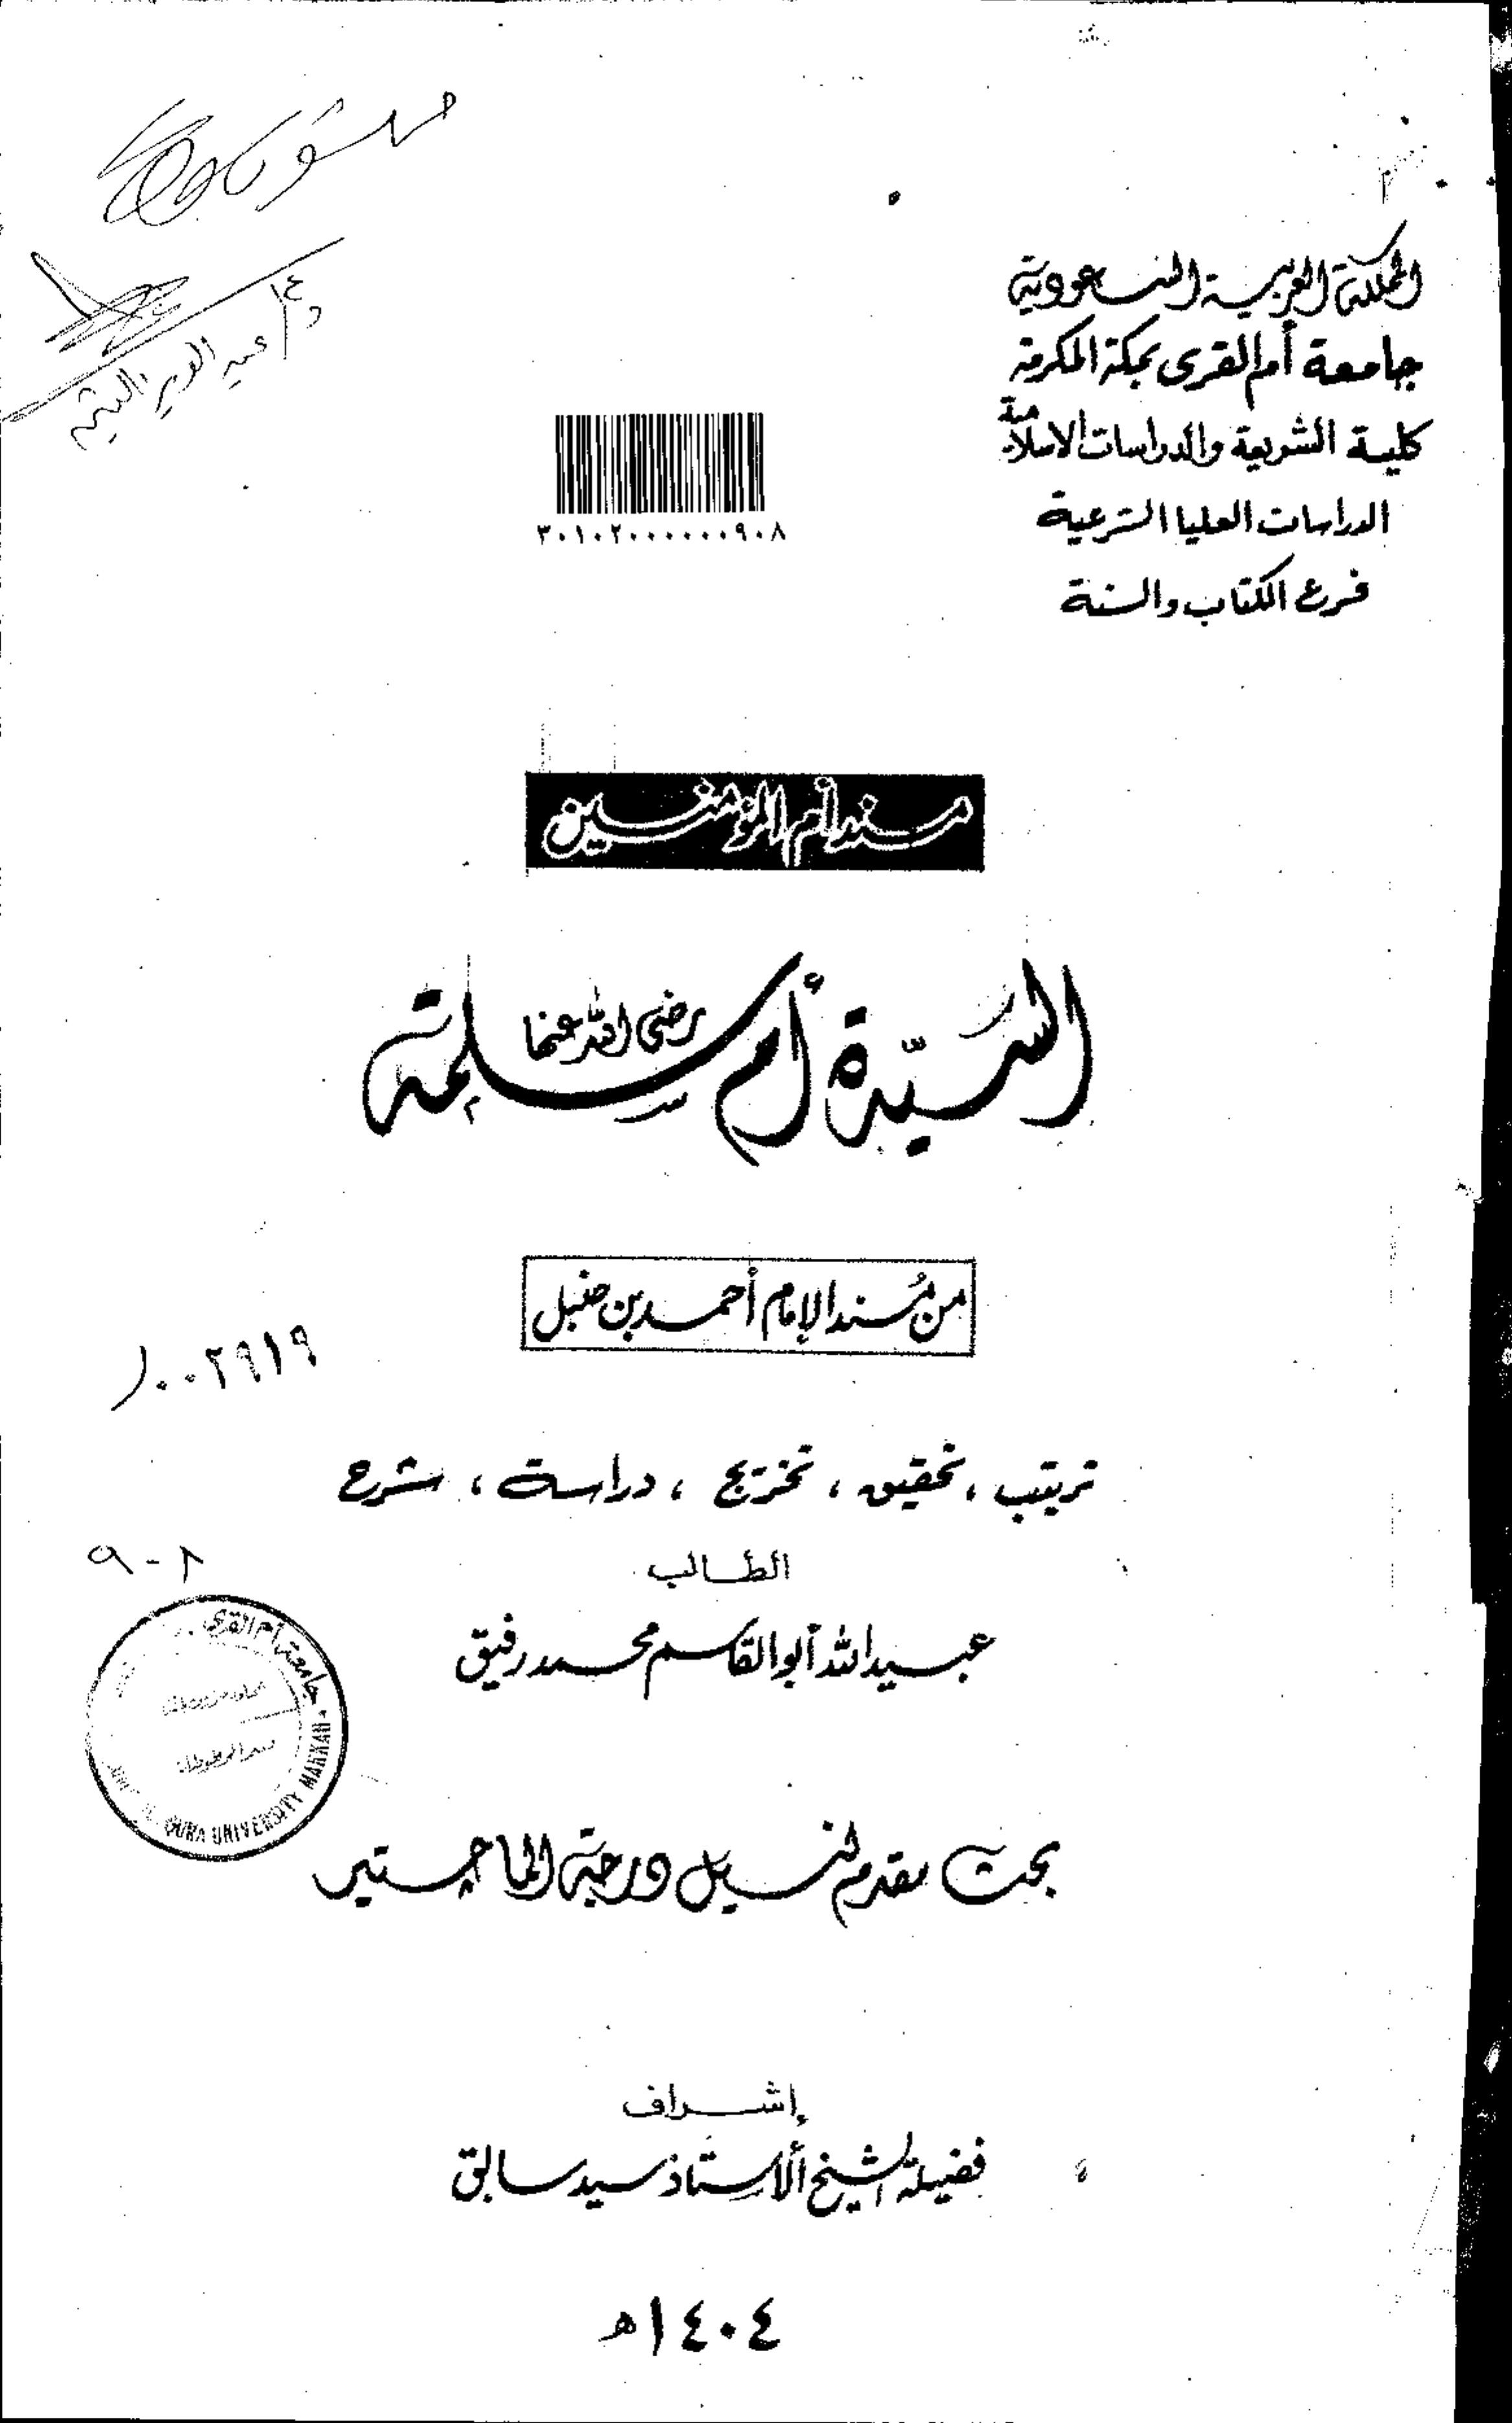 المملكة العربية السعودية
جامعة أم القرى بمكة المكرمة
كلية الشريعة والدراسات الاسلامية
الدراسات العليا الشرعية
فرع الكتاب والسنة
٣٠١٠٢٠٠٠٠٠٠٩٠٨
مسند أم المؤمنين
السيّدة أم سلمة رضى الله عنها
من مُسند الإمام أحمد بن حنبل
٠٠٢٩١٩
ترتيب ، تحقيق ، تخريج ، دراسة ، شرح
٩٠٨
الطالب
عبيد الله أبو القاسم محمد رفيق
جامعة أم القرى
QURA UNIVERSITY MAKKAH
بحث مقدم لنيل درجة الماجستير
إشراف
فضيلة الشيخ الأستاذ سيد سابق
١٤٠٤ھ